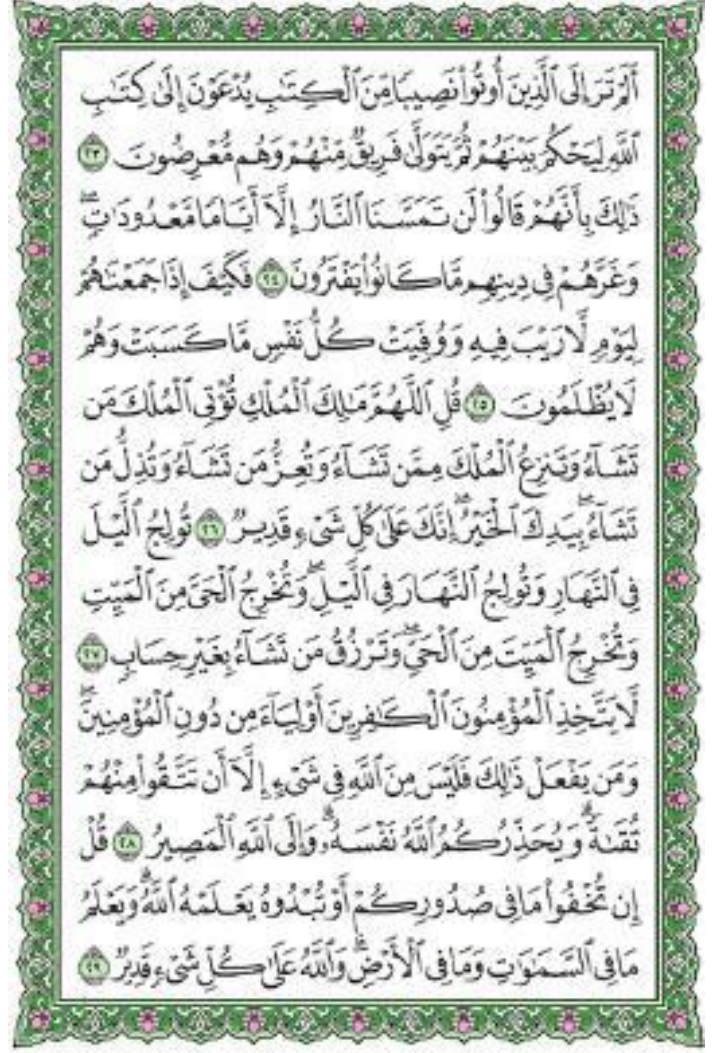 أَلَمْ تَرَ إِلَى ٱلَّذِينَ أُوتُوا۟ نَصِيبًا مِّنَ ٱلْكِتَٰبِ يُدْعَوْنَ إِلَىٰ كِتَٰبِ
ٱللَّهِ لِيَحْكُمَ بَيْنَهُمْ ثُمَّ يَتَوَلَّىٰ فَرِيقٌ مِّنْهُمْ وَهُم مُّعْرِضُونَ ٢٣
ذَٰلِكَ بِأَنَّهُمْ قَالُوا۟ لَن تَمَسَّنَا ٱلنَّارُ إِلَّآ أَيَّامًا مَّعْدُودَٰتٍ ۖ
وَغَرَّهُمْ فِى دِينِهِم مَّا كَانُوا۟ يَفْتَرُونَ ٢٤ فَكَيْفَ إِذَا جَمَعْنَٰهُمْ
لِيَوْمٍ لَّا رَيْبَ فِيهِ وَوُفِّيَتْ كُلُّ نَفْسٍ مَّا كَسَبَتْ وَهُمْ
لَا يُظْلَمُونَ ٢٥ قُلِ ٱللَّهُمَّ مَٰلِكَ ٱلْمُلْكِ تُؤْتِى ٱلْمُلْكَ مَن
تَشَآءُ وَتَنزِعُ ٱلْمُلْكَ مِمَّن تَشَآءُ وَتُعِزُّ مَن تَشَآءُ وَتُذِلُّ مَن
تَشَآءُ ۖ بِيَدِكَ ٱلْخَيْرُ ۖ إِنَّكَ عَلَىٰ كُلِّ شَىْءٍ قَدِيرٌ ٢٦ تُولِجُ ٱلَّيْلَ
فِى ٱلنَّهَارِ وَتُولِجُ ٱلنَّهَارَ فِى ٱلَّيْلِ ۖ وَتُخْرِجُ ٱلْحَىَّ مِنَ ٱلْمَيِّتِ
وَتُخْرِجُ ٱلْمَيِّتَ مِنَ ٱلْحَىِّ ۖ وَتَرْزُقُ مَن تَشَآءُ بِغَيْرِ حِسَابٍ ٢٧
لَّا يَتَّخِذِ ٱلْمُؤْمِنُونَ ٱلْكَٰفِرِينَ أَوْلِيَآءَ مِن دُونِ ٱلْمُؤْمِنِينَ ۖ
وَمَن يَفْعَلْ ذَٰلِكَ فَلَيْسَ مِنَ ٱللَّهِ فِى شَىْءٍ إِلَّآ أَن تَتَّقُوا۟ مِنْهُمْ
تُقَىٰةً ۗ وَيُحَذِّرُكُمُ ٱللَّهُ نَفْسَهُۥ ۗ وَإِلَى ٱللَّهِ ٱلْمَصِيرُ ٢٨ قُلْ
إِن تُخْفُوا۟ مَا فِى صُدُورِكُمْ أَوْ تُبْدُوهُ يَعْلَمْهُ ٱللَّهُ ۗ وَيَعْلَمُ
مَا فِى ٱلسَّمَٰوَٰتِ وَمَا فِى ٱلْأَرْضِ ۗ وَٱللَّهُ عَلَىٰ كُلِّ شَىْءٍ قَدِيرٌ ٢٩